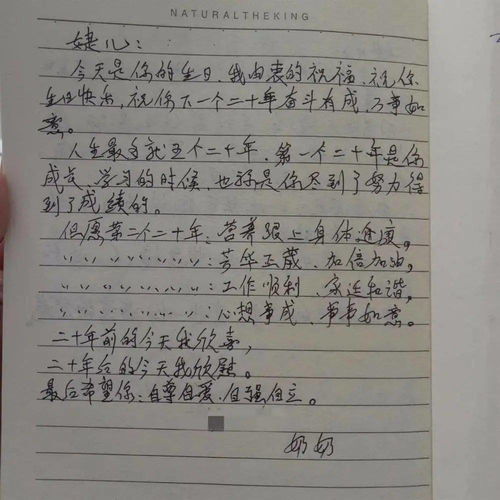 NATURALTHEKING
婕儿：
今天是你的生日，我由衷的祝福，祝你
生日快乐，祝你下一个二十年奋斗有成，万事如
意。
人生最多就五个二十年，第一个二十年是你
成长、学习的时候，也算是你尽到了努力得
到了成绩的。
但愿第二个二十年：营养跟上身体适度，
〃 〃 〃 〃 〃 〃 〃：芳华正茂、加倍加油，
〃 〃 〃 〃 〃 〃 〃：工作顺利、家庭和谐，
〃 〃 〃 〃 〃 〃 〃：心想事成、事事如意。
二十年前的今天我欣喜，
二十年后的今天我欣慰。
最后希望你：自尊自爱、自强自立。
奶奶